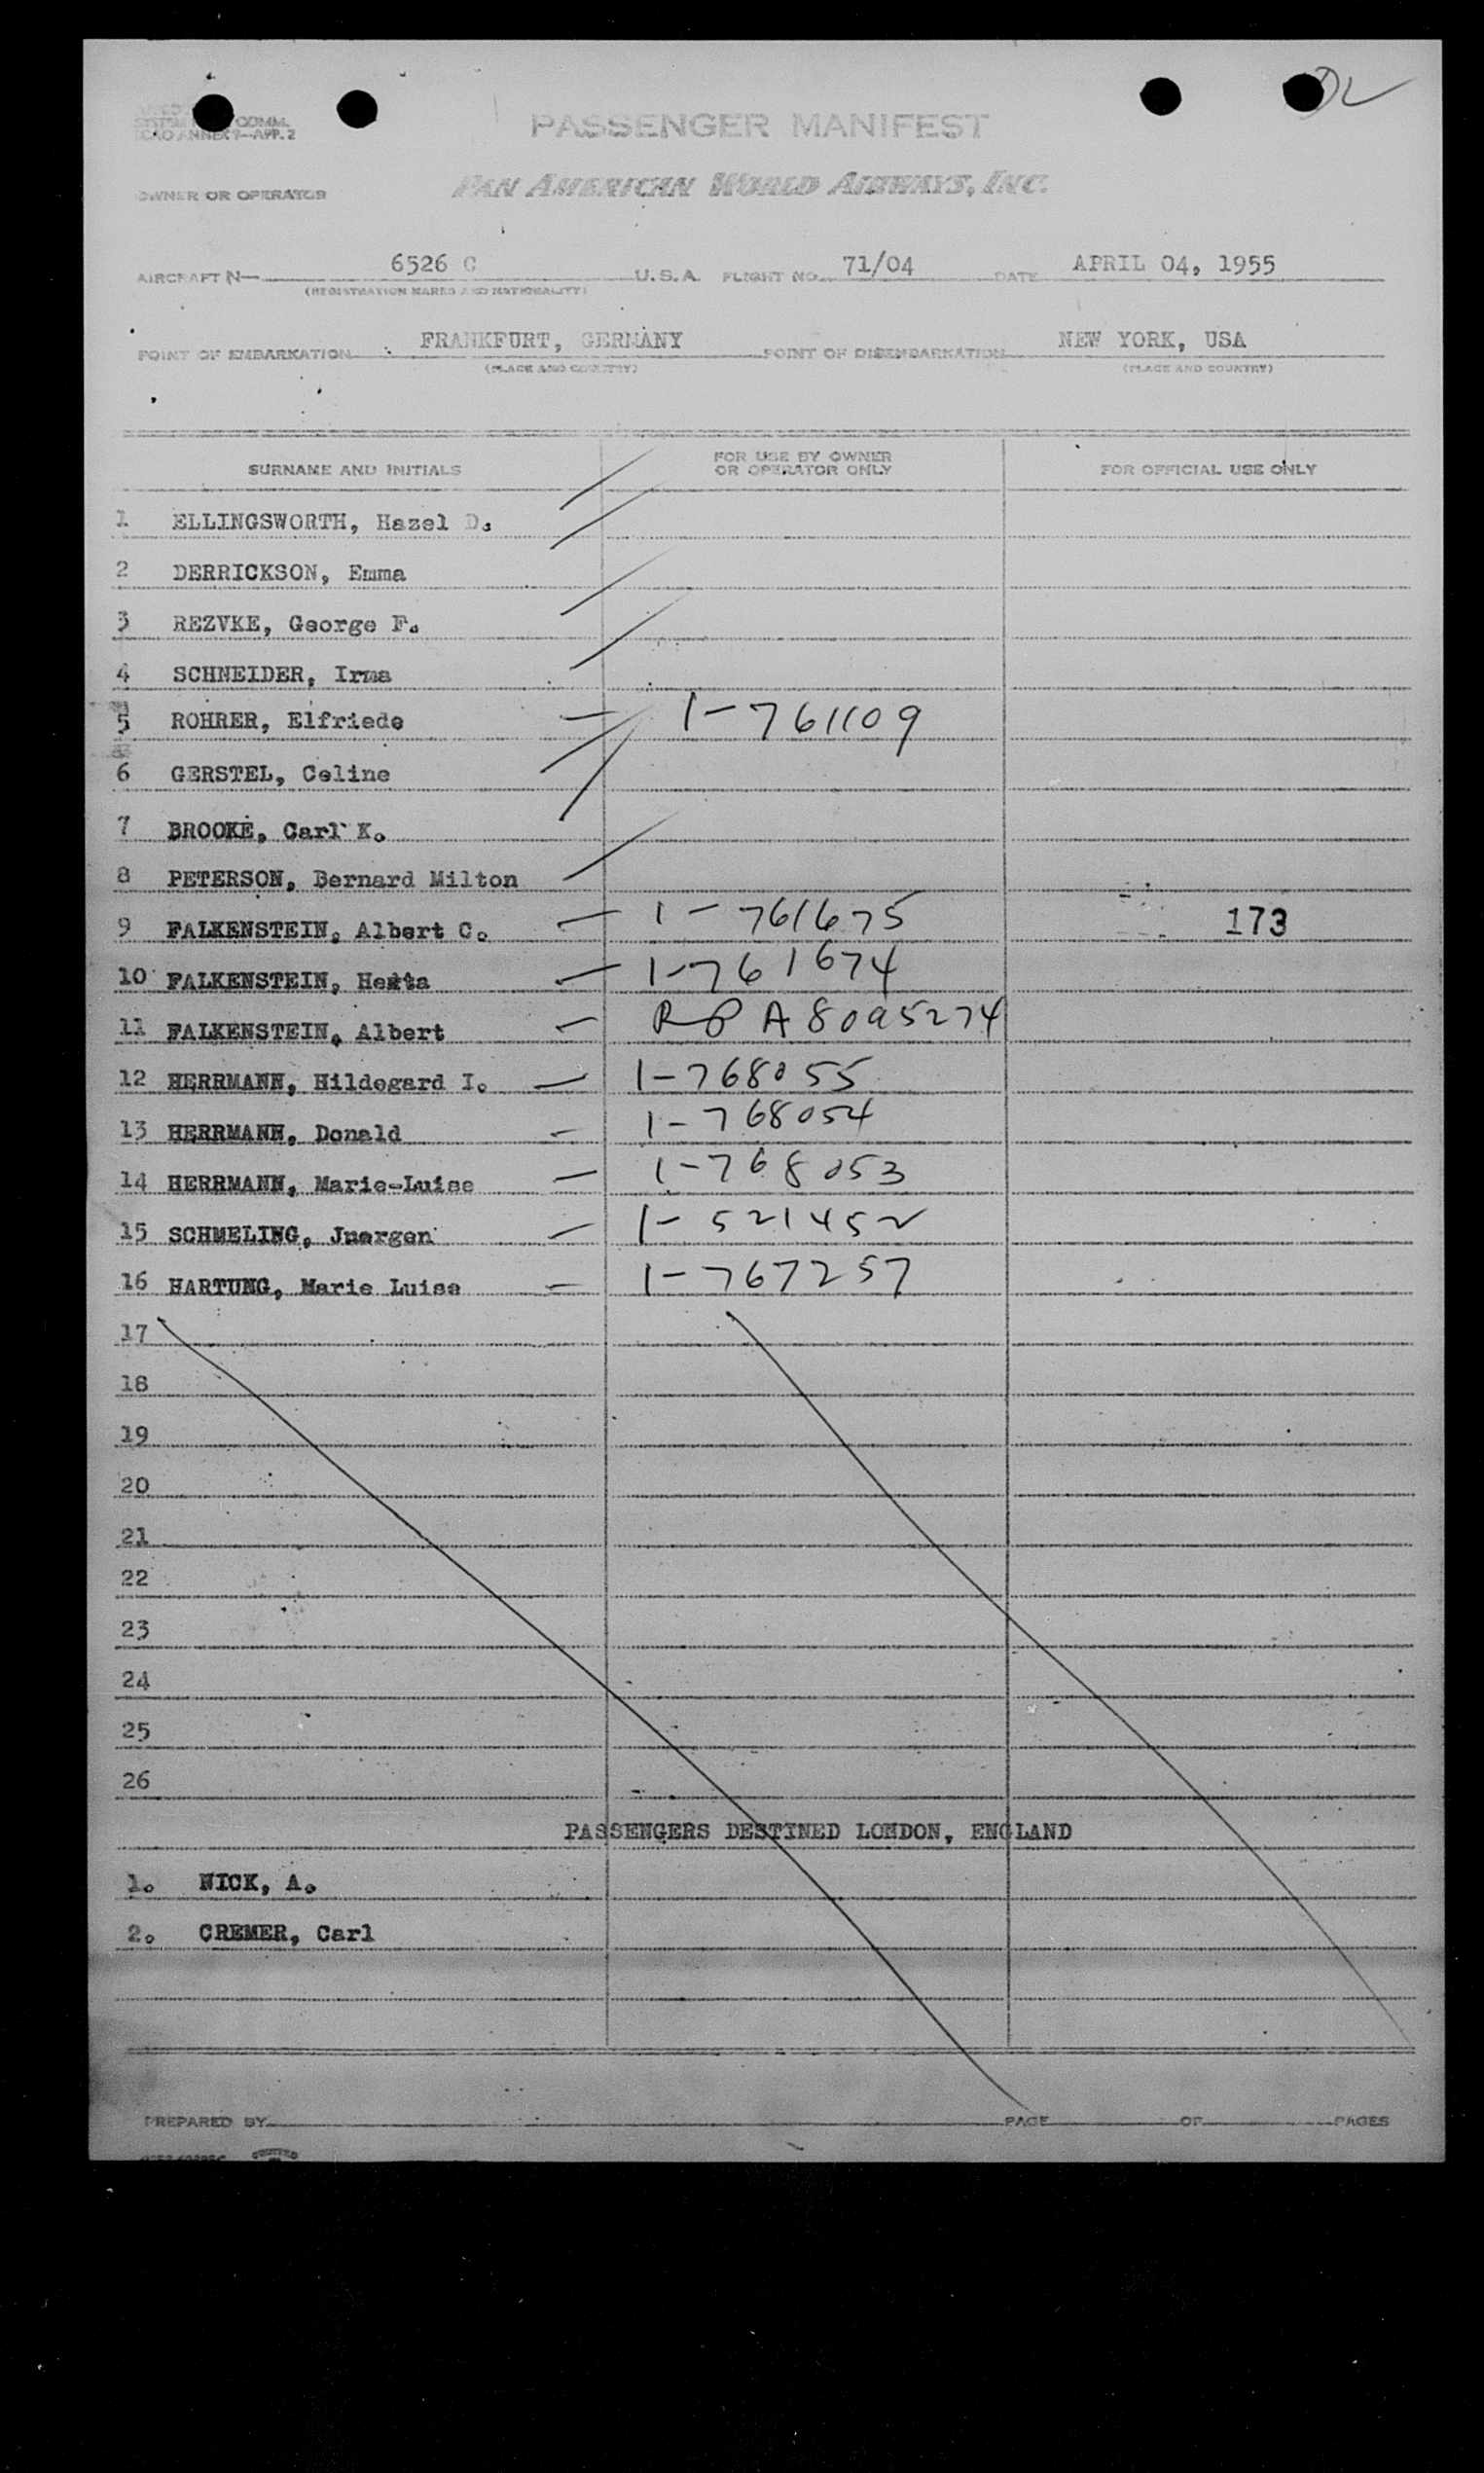 DL
COMM.
ICAO ANNEX 9—APP. 2
PASSENGER MANIFEST
OWNER OR OPERATOR PAN AMERICAN WORLD AIRWAYS, INC.
AIRCRAFT N— 6526 C U.S.A. FLIGHT NO. 71/04 DATE APRIL 04, 1955
(REGISTRATION MARKS AND NATIONALITY)
POINT OF EMBARKATION FRANKFURT, GERMANY POINT OF DISEMBARKATION NEW YORK, USA
(PLACE AND COUNTRY) (PLACE AND COUNTRY)
SURNAME AND INITIALS FOR USE BY OWNER OR OPERATOR ONLY FOR OFFICIAL USE ONLY
1 ELLINGSWORTH, Hazel D.
2 DERRICKSON, Emma
3 REZVKE, George F.
4 SCHNEIDER, Irma
5 ROHRER, Elfriede — 1-761109
6 GERSTEL, Celine
7 BROOKE, Carl K.
8 PETERSON, Bernard Milton
9 FALKENSTEIN, Albert C. — 1-761675 173
10 FALKENSTEIN, Herta — 1-761674
11 FALKENSTEIN, Albert — RP A8095274
12 HERRMANN, Hildegard I. — 1-768055
13 HERRMANN, Donald — 1-768054
14 HERRMANN, Marie-Luise — 1-768053
15 SCHMELING, Juergen — 1-521452
16 HARTUNG, Marie Luise — 1-767257
17
18
19
20
21
22
23
24
25
26
PASSENGERS DESTINED LONDON, ENGLAND
1. NICK, A.
2. CREMER, Carl
PREPARED BY PAGE OF PAGES